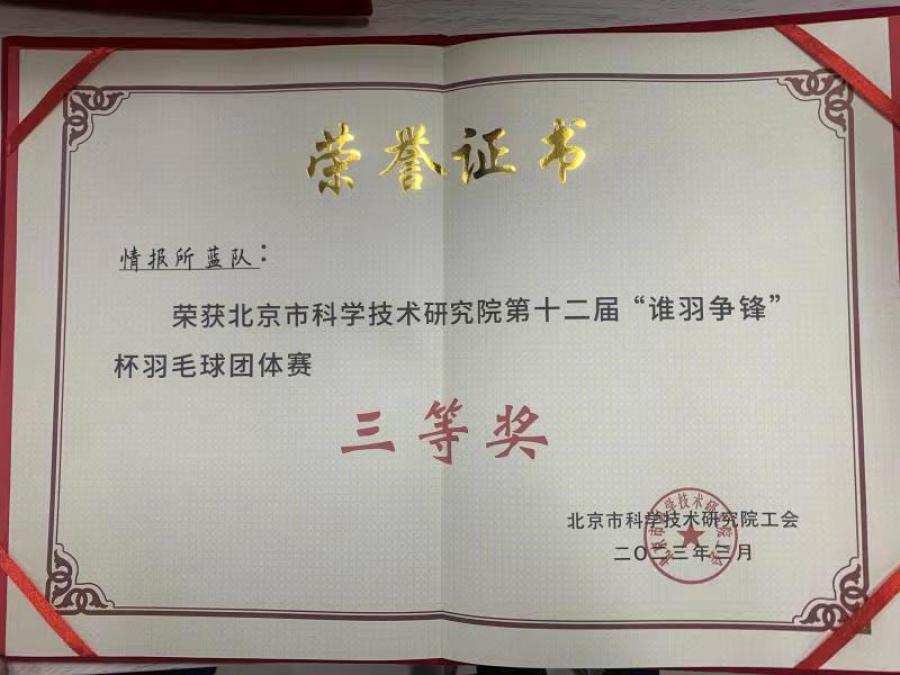 荣誉证书
情报所蓝队：
荣获北京市科学技术研究院第十二届“谁羽争锋”
杯羽毛球团体赛
三等奖
北京市科学技术研究院工会
二〇二三年三月